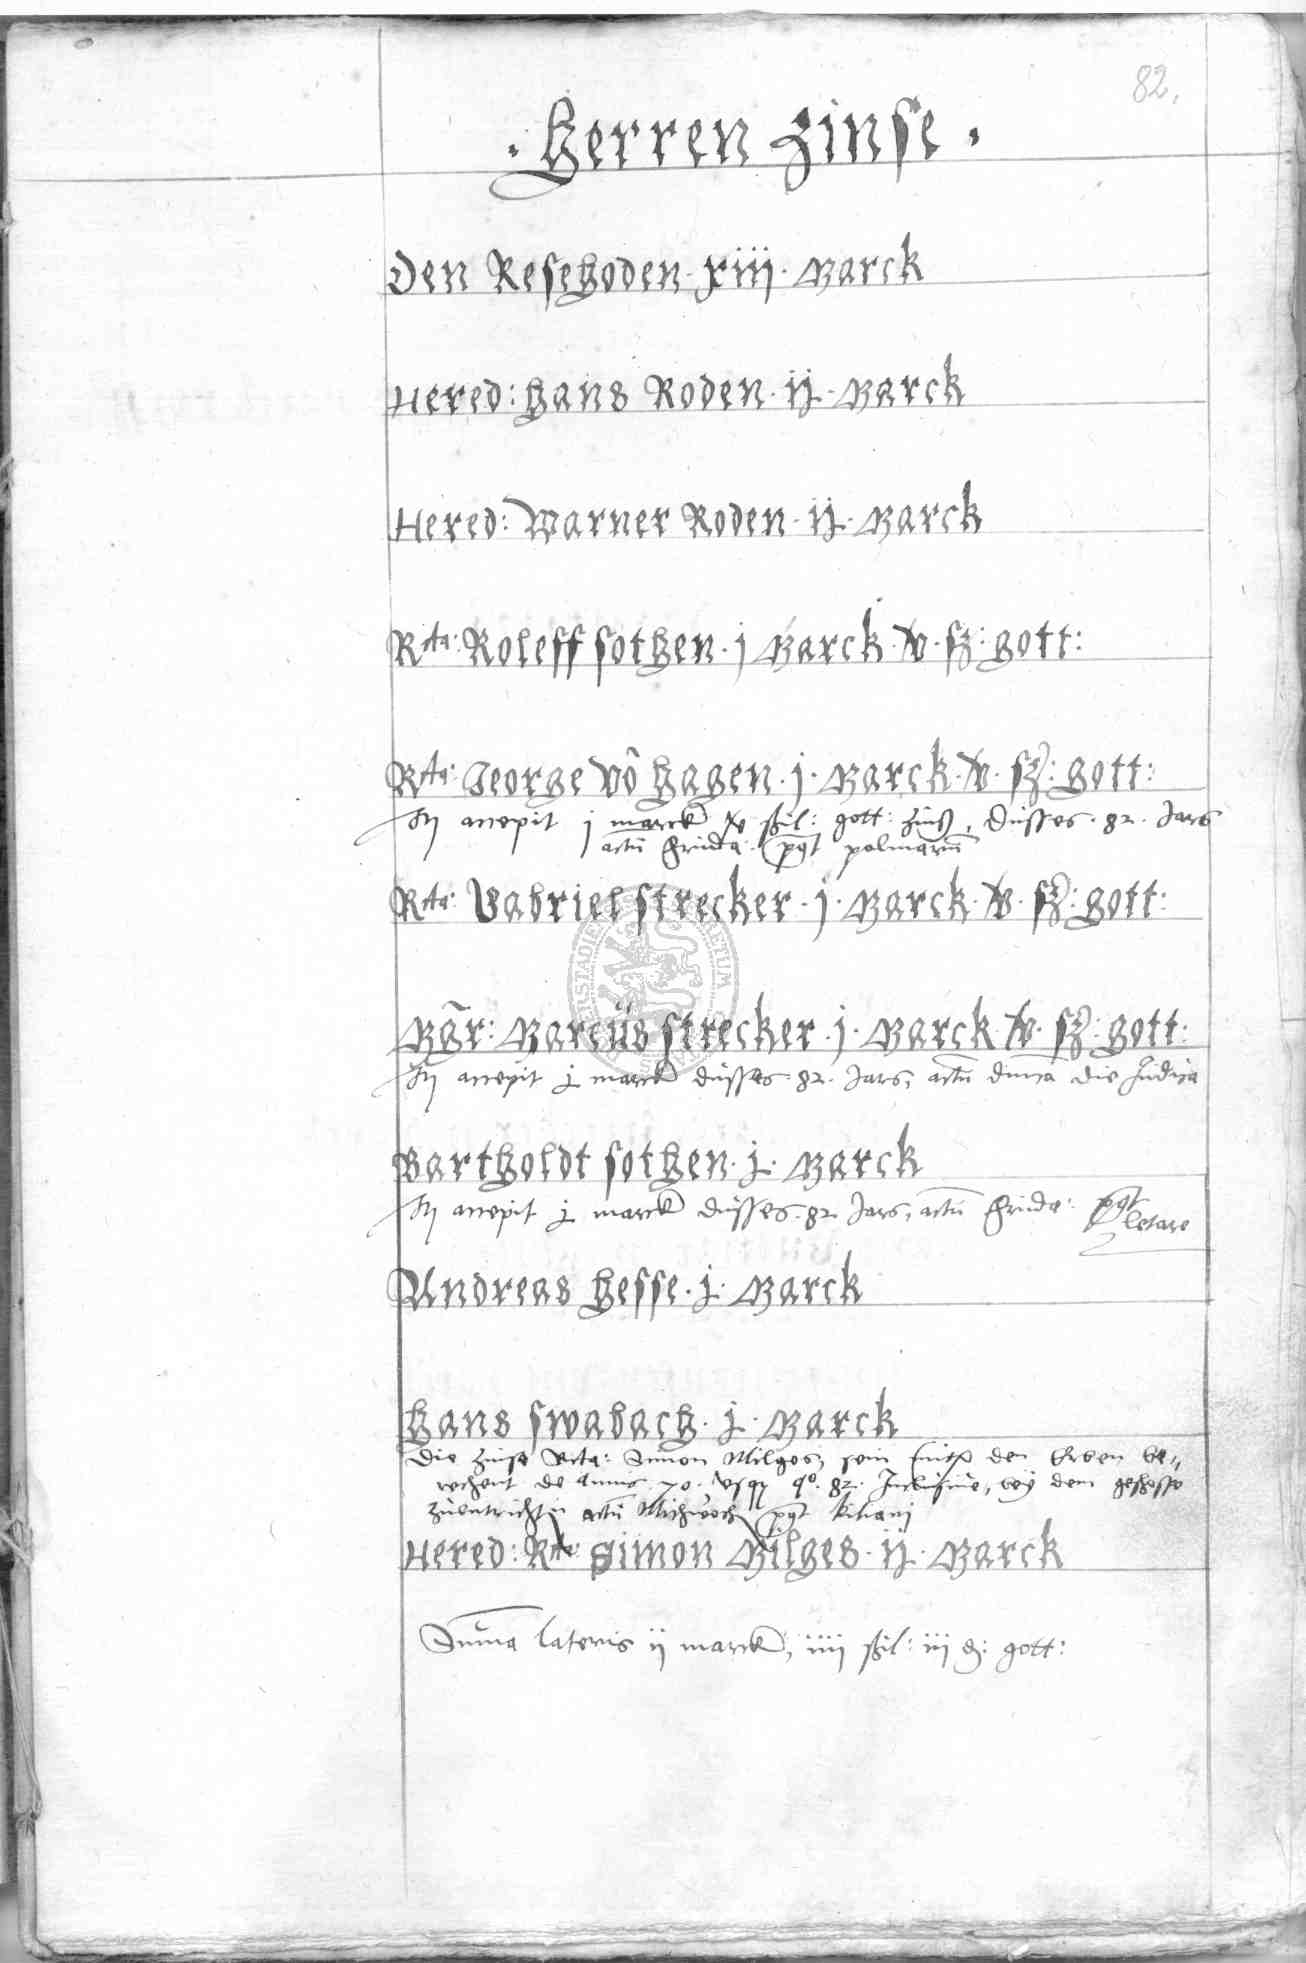 82.
. Herren Zinse .
Den Resehoden . xiij . Marck
Hered: Hans Roden . ij . Marck
Hered: Warner Roden . ij . Marck
Rta: Roleff sothen . j Marck . v . sz: gott:
Rta: Jeorge võ Hagen . j . Marck . v . sz: gott:
accepit j marck v ßil: gott: Zinß, disses . 82 . Jars
actũ pgt palmarũ
Rta: Gabriel strecker . j . Marck . v . sz: gott:
Mgr: Marcus strecker . j . Marck . v . sz: gott:
accepit j marck disses . 82 . Jars, actũ die Judica
Bartholdt sothen . j . Marck
accepit j marck disses . 82 Jars, actũ pgt
letare
Andreas Hesse . j . Marck
Hans swabach . j . Marck
Die Zinse Rcta: Simon Milges, sein den Erben be„
rechent de annis . 70 . vsq 82 . Inclusiue, bey dem geschosse
actũ Mithwoch pgt Kiliani
Hered: Rta: Simon Milges . ij . Marck
Suma lateris ij marck, iiij ßil: iij gott: